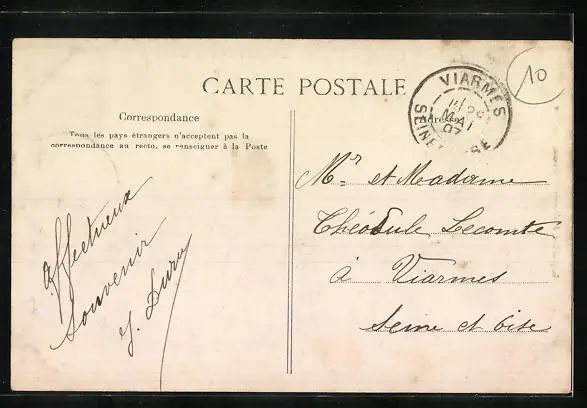 CARTE POSTALE
Correspondance
Tous les pays étrangers n'acceptent pas la
correspondance au recto, se renseigner à la Poste
Affectueux
Souvenir
J. Duru
10
VIARMES
MAI
07
SEINE
OISE
Adresse
Mr et Madame
Théodule Lecomte
à Viarmes
Seine et Oise